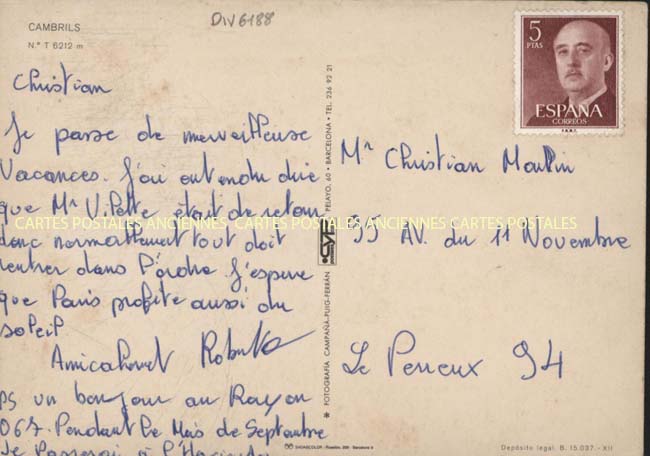 DIV6188
CAMBRILS
N.º T 6212 m
Christian
Je passe de merveilleuse
Vacances. J'ai entendu dire
que Mr Vilette était de retour
donc normallement tout doit
rentrer dans l'ordre J'espere
que Paris profite aussi du
soleil
Amicalement
PS un bonjour au Rayon
067. Pendant le Mois de Septembre
Je Passerai à l'
CARTES POSTALES ANCIENNES CARTES POSTALES ANCIENNES CARTES POSTALES
✱ FOTOGRAFÍA CAMPAÑÁ-PUIG-FERRÁN
CYP
PELAYO, 60 • BARCELONA • TEL. 236 92 21
5
PTAS
ESPAÑA
CORREOS
F.N.M.T.
Mr Christian Maulin
95 AV. du 11 Novembre
Le Perreux 94
Depósito legal. B. 15.037. - XII